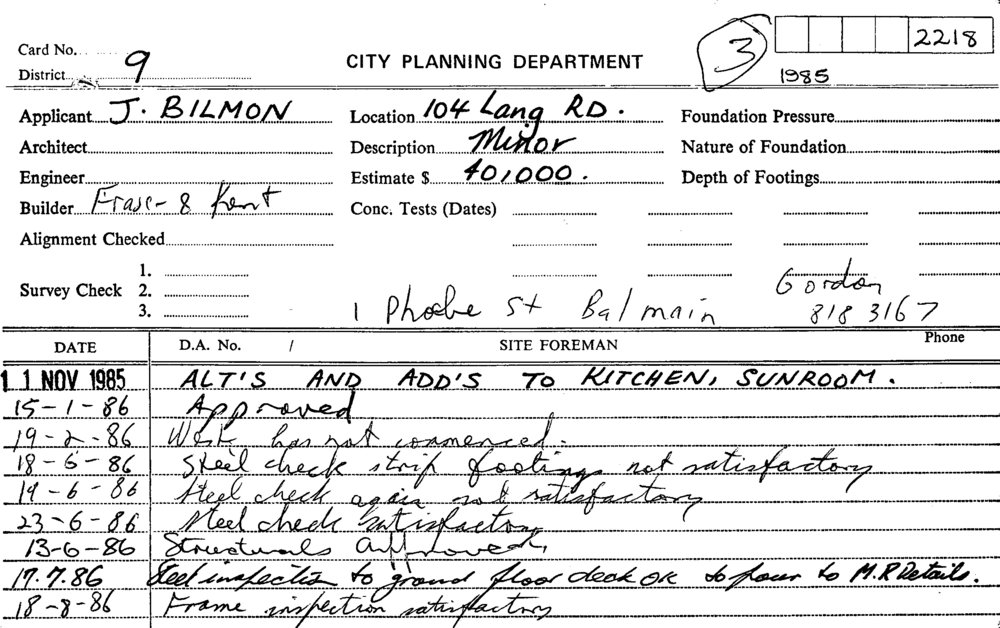 Card No. 3 2218
District 9 CITY PLANNING DEPARTMENT 1985
Applicant J. BILMON Location 104 Lang RD. Foundation Pressure
Architect Description Minor Nature of Foundation
Engineer Estimate $ 40,000. Depth of Footings
Builder Fraser & Kent Conc. Tests (Dates)
Alignment Checked
1.
Survey Check 2. Gordon
3. 1 Phoebe St Balmain 818 3167
DATE D.A. No. / SITE FOREMAN Phone
11 NOV 1985 ALT'S AND ADD'S TO KITCHEN, SUNROOM.
15-1-86 Approved
19-2-86 Work has not commenced.
18-6-86 Steel check strip footings not satisfactory
19-6-86 Steel check again not satisfactory
23-6-86 Steel check satisfactory
13-6-86 Structurals approved.
17.7.86 Steel inspection to ground floor deck OK to pour to M.R Details.
18-8-86 Frame inspection satisfactory